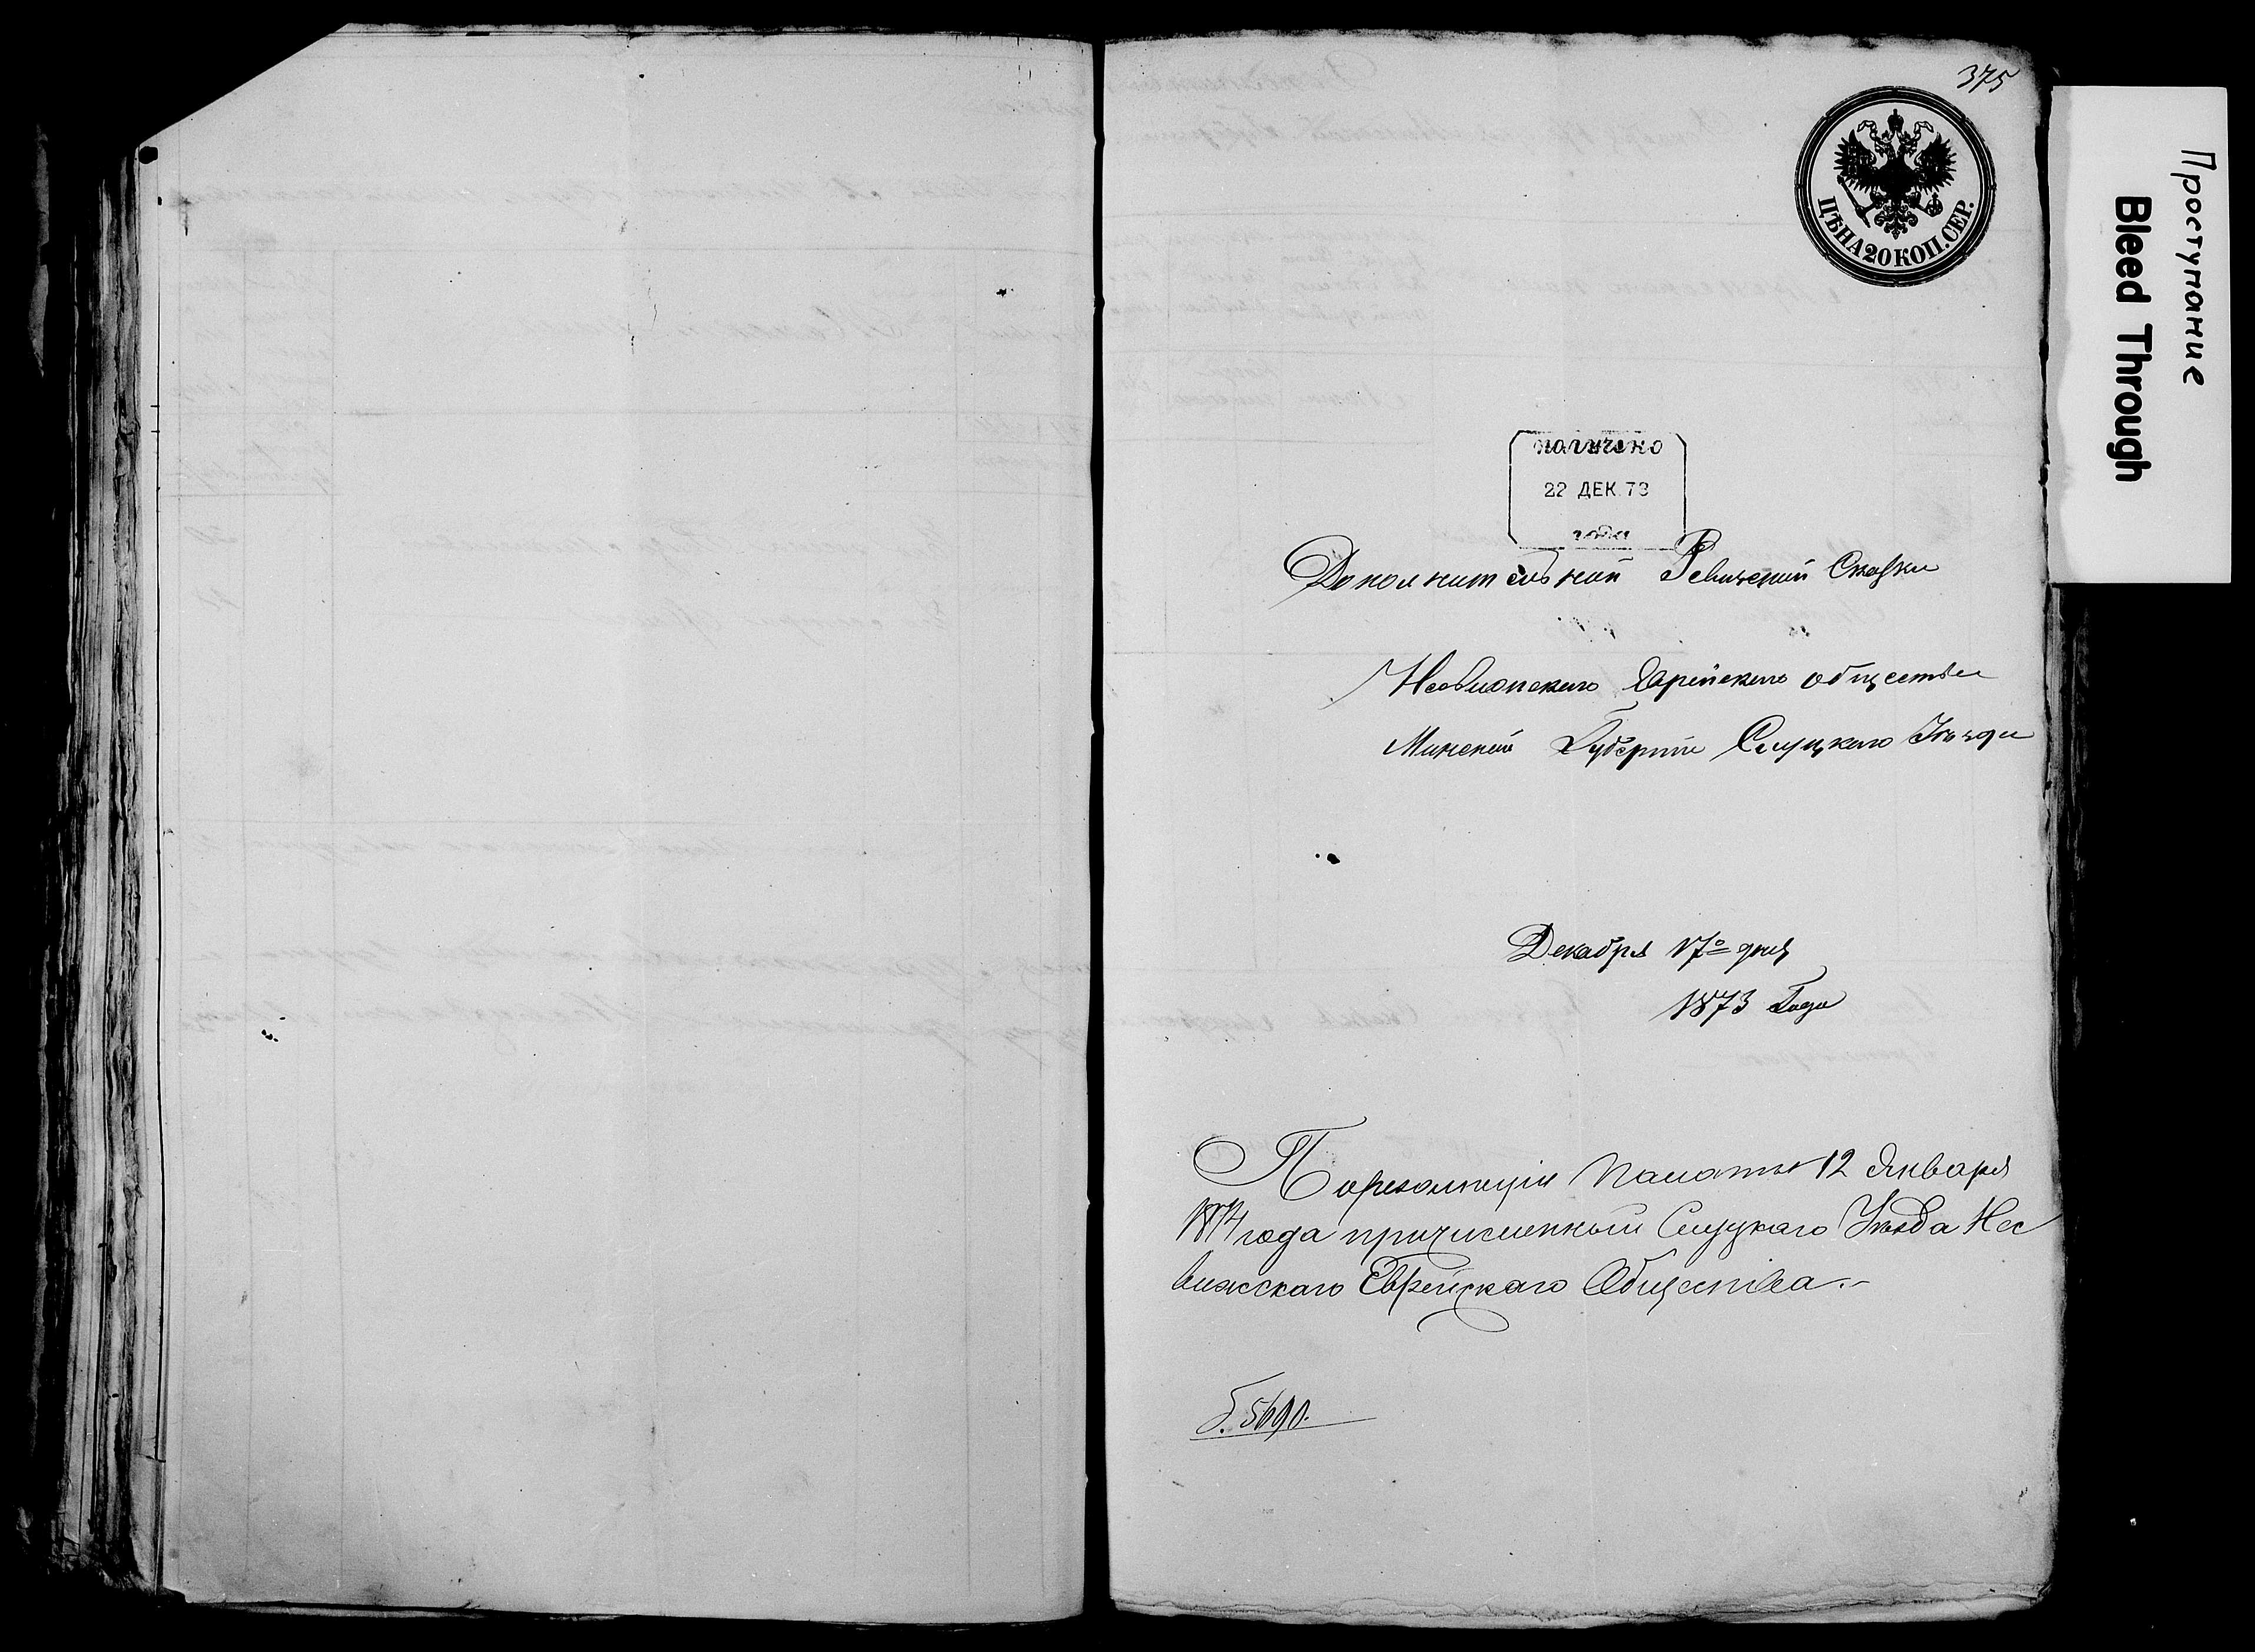 375
ЦѢНА 20 КОП. СЕР.
Проступание
Bleed Through
получено
22 ДЕК. 73
года
Дополнительной Ревизской Сказки
Несвижскаго Еврейскаго общества
Минской Губерніи Слуцкаго Уѣзда
Декабря 17º дня
1873 Года
По резолюціи Палаты 12 Января
1874 года причисленный Слуцкаго Уѣзда Нес
вижскаго Еврейскаго Общества.-
5690.